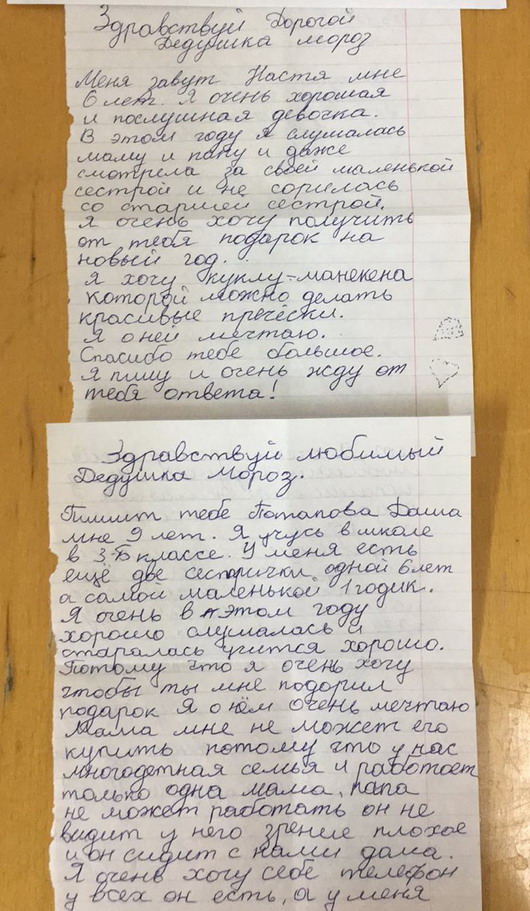 Здравствуй Дорогой
Дедушка мороз
Меня завут Настя мне
6 лет. Я очень хорошая
и послушная девочка.
В этом году я слушалась
маму и папу и даже
смотрела за своей маленькой
сестрой и не сорилась
со старшей сестрой.
Я очень хочу получить
от тебя подарок на
новый год.
Я хочу куклу-манекена
которой можно делать
красивые прёчёски.
Я о ней мечтаю.
Спасибо тебе большое.
Я пишу и очень жду от
тебя ответа!
Здравствуй любимый
Дедушка Мороз.
Пишит тебе Потапова Даша
мне 9 лет. Я учусь в школе
в 3-Б классе. У меня есть
ещё две сестрички одной 6 лет
а самой маленькой 1 годик.
Я очень в этом году
хорошо слушалась и
старалась учится хорошо.
Потому что я очень хочу
чтобы ты мне подорил
подарок Я о нём очень мечтаю
Мама мне не может его
купить потому что у нас
многодетная семья и работает
только одна мама, папа
не может работать он не
видит у него зрение плохое
и он сидит с нами дома.
Я очень хочу себе телефон
у всех он есть, а у меня